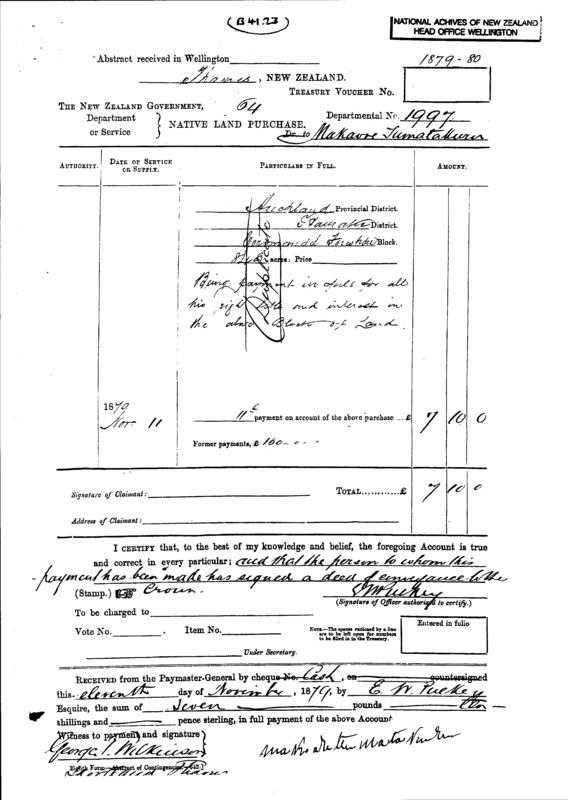 (B 41.23)
NATIONAL ACHIVES OF NEW ZEALAND
HEAD OFFICE WELLINGTON
Abstract received in Wellington
1879-80
Thames, NEW ZEALAND.
TREASURY VOUCHER No.
THE NEW ZEALAND GOVERNMENT,
64
Departmental No. 1997
Department
or Service
NATIVE LAND PURCHASE.
Dr. to
AUTHORITY.
DATE OF SERVICE OR SUPPLY.
PARTICULARS IN FULL.
AMOUNT.
Auckland Provincial District.
District.
Block.
acres: Price
Being payment in full for all
his right title and interest in
the above Block of Land.
1879
Nov. 11
11th payment on account of the above purchase ... £ 7 10 0
Former payments, £ 160 - 0 - 0
Signature of Claimant:
TOTAL............£ 7 10 0
Address of Claimant:
I CERTIFY that, to the best of my knowledge and belief, the foregoing Account is true
and correct in every particular; and that the person to whom this
payment has been made has signed a deed of conveyance to the
(Stamp.) Crown.
E W Puckey
(Signature of Officer authorised to certify.)
To be charged to
Vote No. . Item No.
NOTE.—The spaces enclosed by a line are to be left open for numbers to be filled in in the Treasury.
Entered in folio
Under Secretary.
RECEIVED from the Paymaster-General by cheque No. Cash, on countersigned
this eleventh day of November, 1879, by E. W. Puckey
Esquire, the sum of Seven pounds ten
shillings and pence sterling, in full payment of the above Account
Witness to payment and signature
George T. Wilkinson
Thames